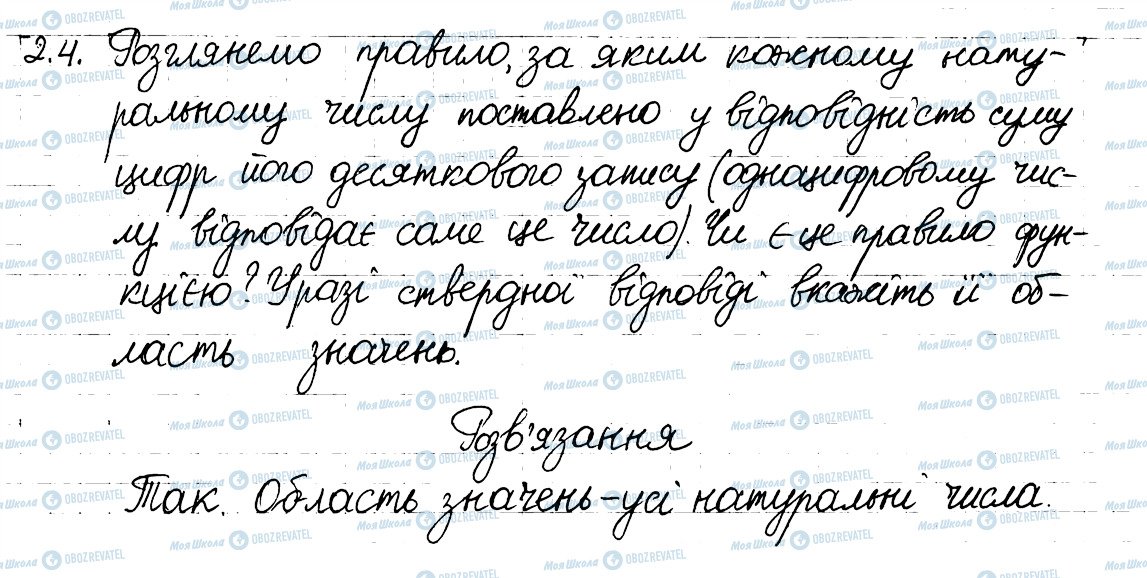 2.4. Розглянемо правило, за яким кожному нату-
ральному числу поставлено у відповідність суму
цифр його десяткового запису (одноцифровому чис-
лу відповідає саме це число). Чи є це правило фун-
кцією? У разі ствердної відповіді вкажіть її об-
ласть значень.
Розв'язання
Так. Область значень - усі натуральні числа.
МояШкола OBOZREVATEL